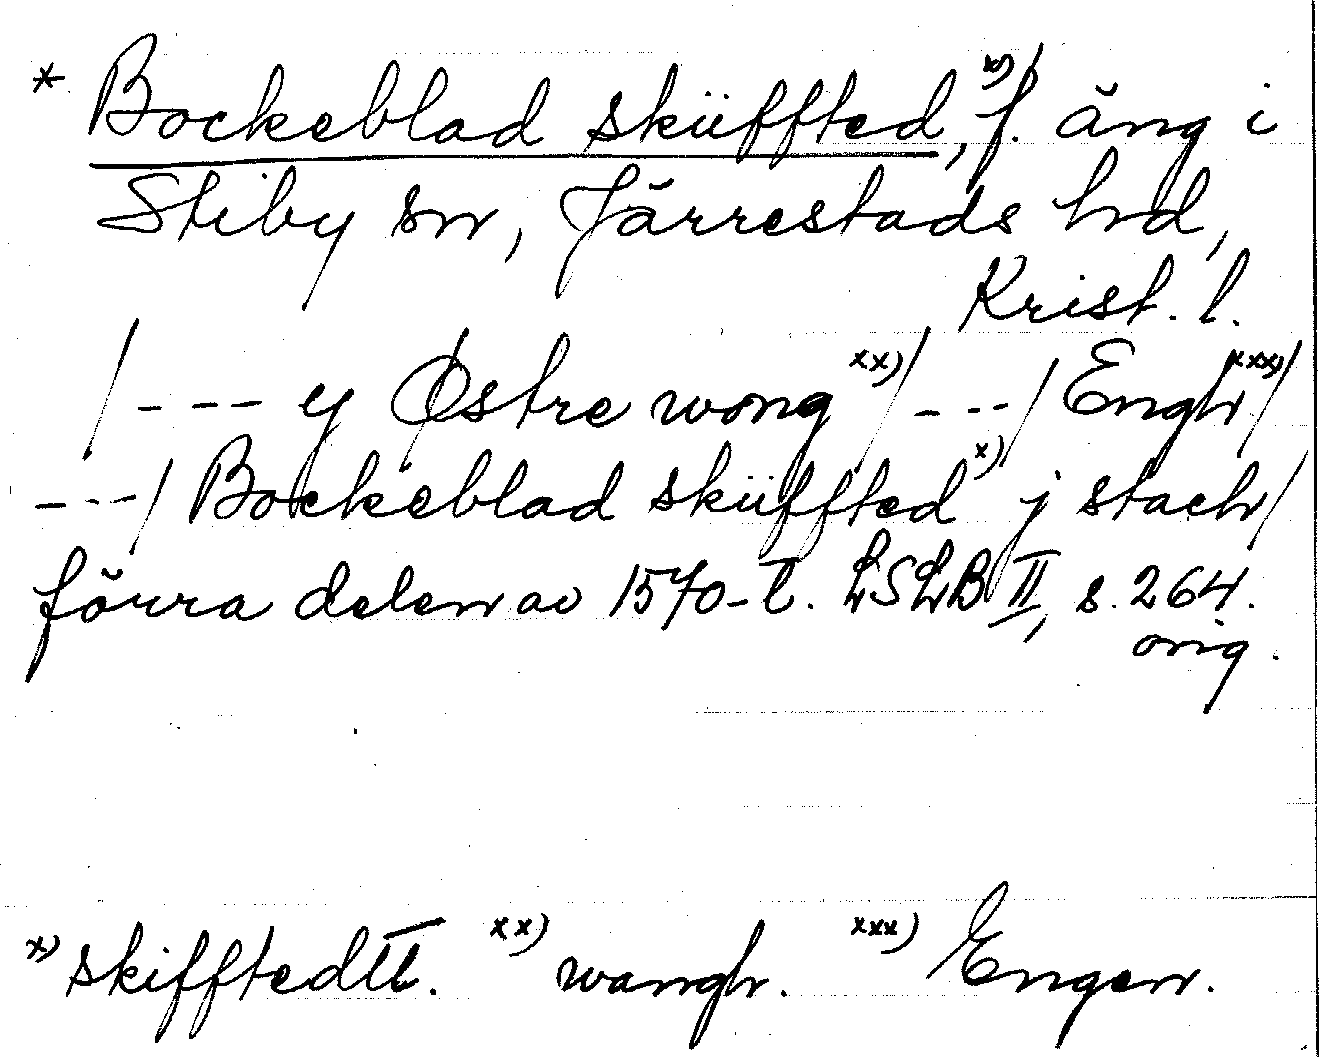 * Bockeblad skiiffted, x) f. äng i
Stiby sn, Järrestads hrd,
Krist. l.
/--- y Østre wong xx)/---/ Engh xxx)/
---/ Bockeblad skiiffted x) j stach/
förra delen av 1570-t. LSLB II, s. 264.
orig.
x) skifftedtt. xx) wangh. xxx) Engen.